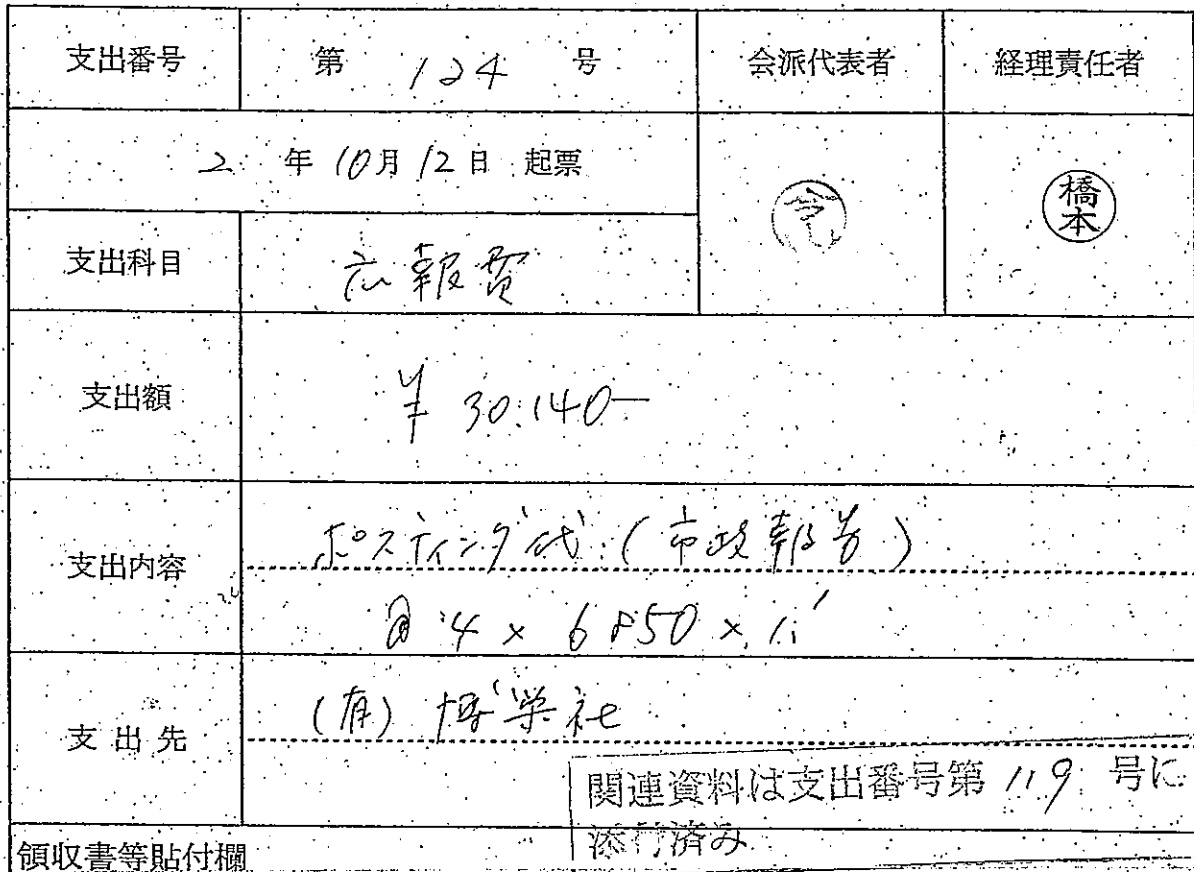 支出番号 第 124 号 会派代表者 経理責任者
2 年 10月 12日 起票
橋本
支出科目 広報費
支出額 ¥30,140-
支出内容 ポスティング代 (市政報告)
@4 × 6850 × 1.1
支出先 (有) 博栄社
関連資料は支出番号第 119 号に
添付済み
領収書等貼付欄